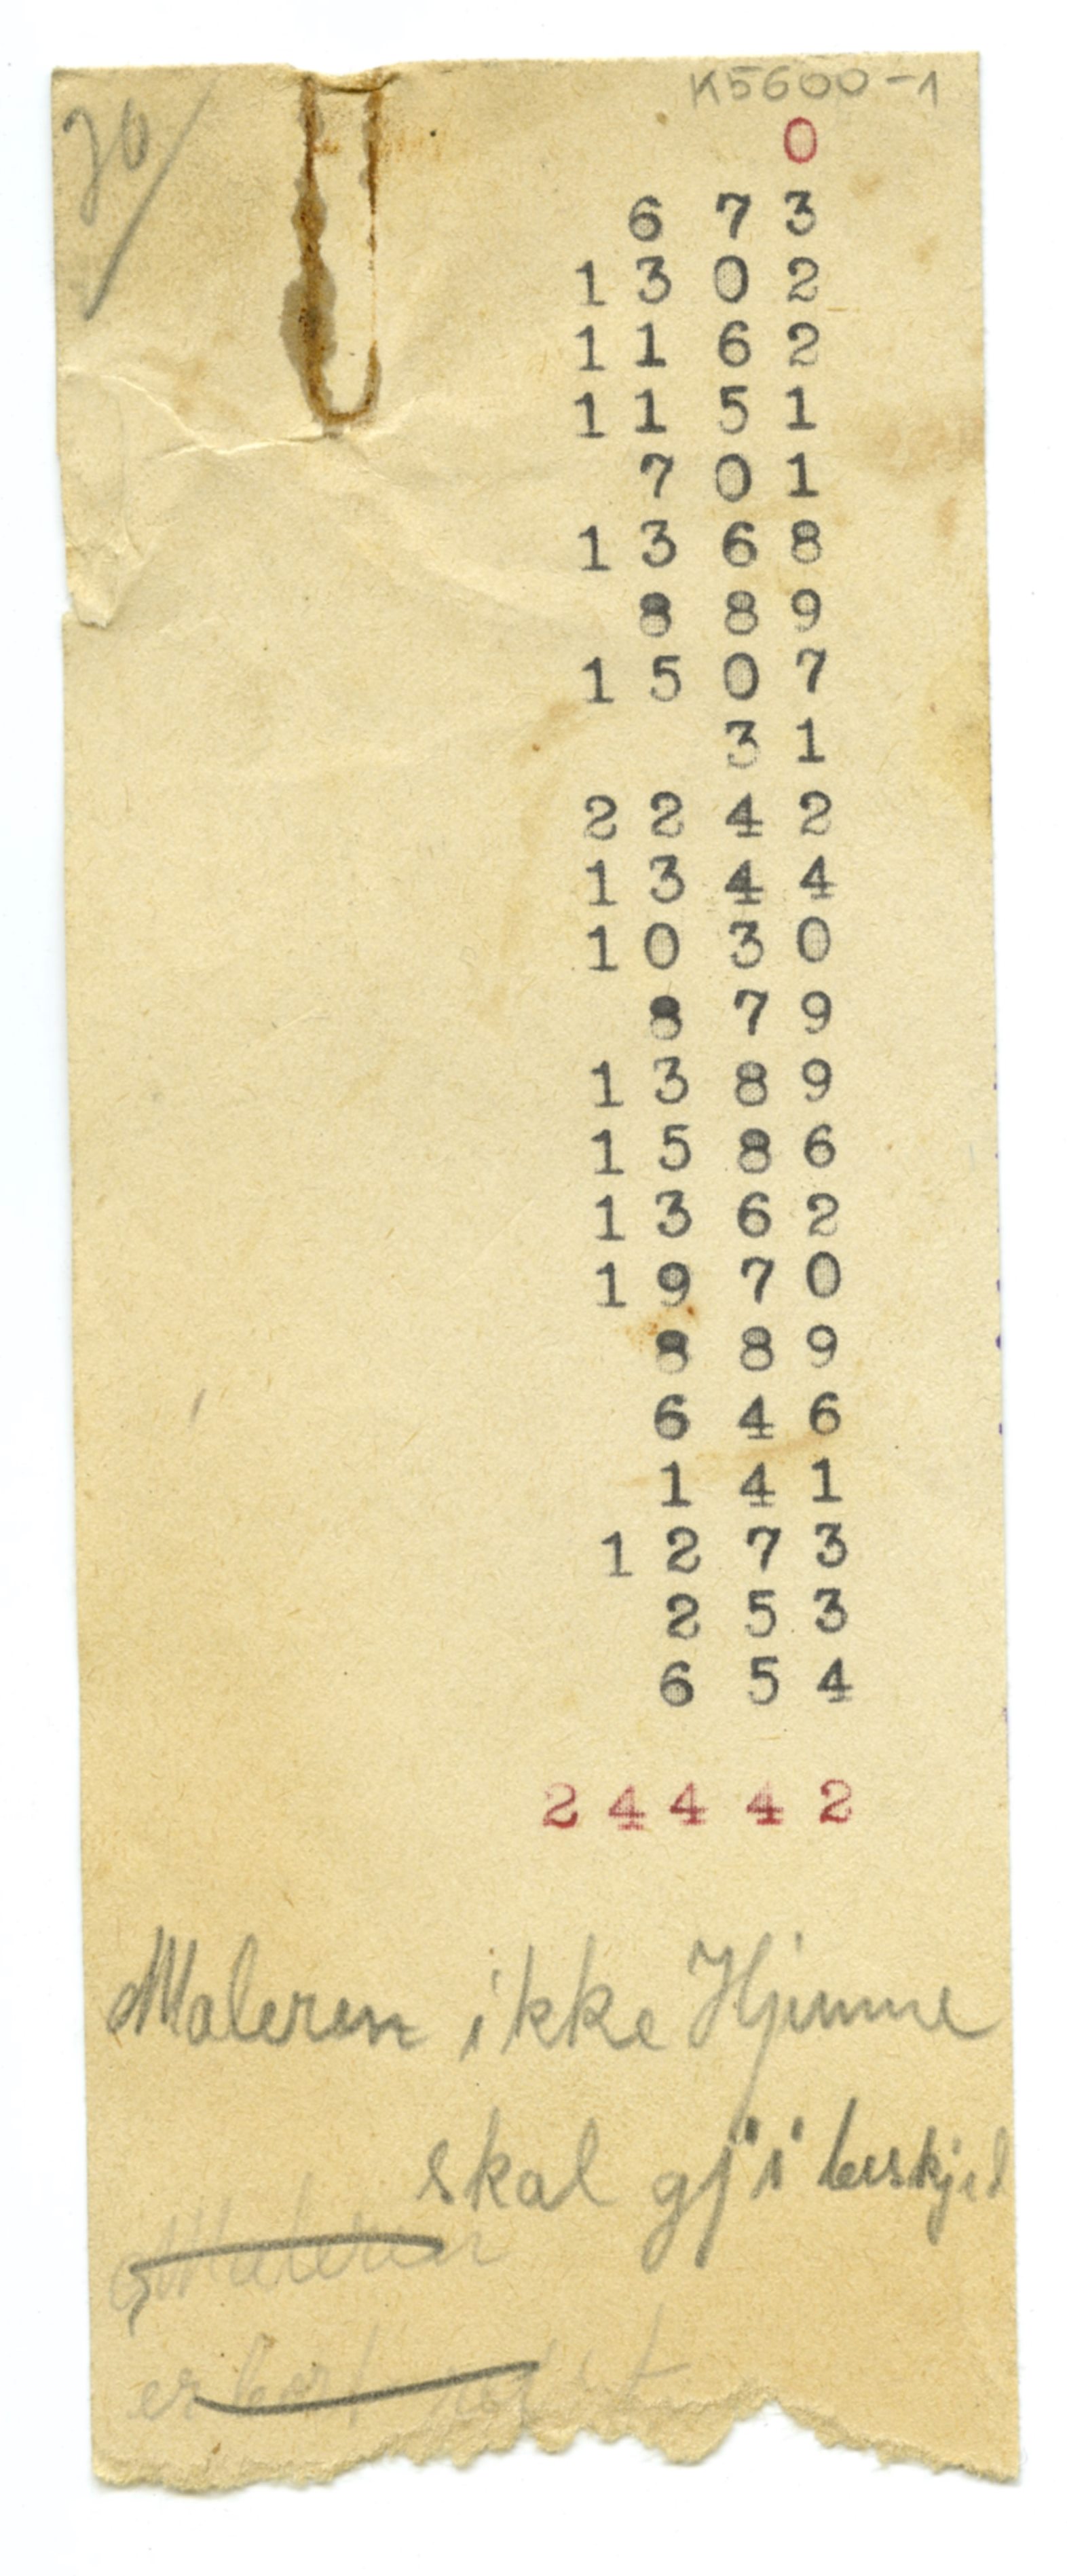 K5600-1
70
0
6 7 3
1 3 0 2
1 1 6 2
1 1 5 1
7 0 1
1 3 6 8
8 8 9
1 5 0 7
3 1
2 2 4 2
1 3 4 4
1 0 3 0
8 7 9
1 3 8 9
1 5 8 6
1 3 6 2
1 9 7 0
8 8 9
6 4 6
1 4 1
1 2 7 3
2 5 3
6 5 4
2 4 4 4 2
Maleren ikke Hjemme
skal gj i beskjed
Maleren
er bort